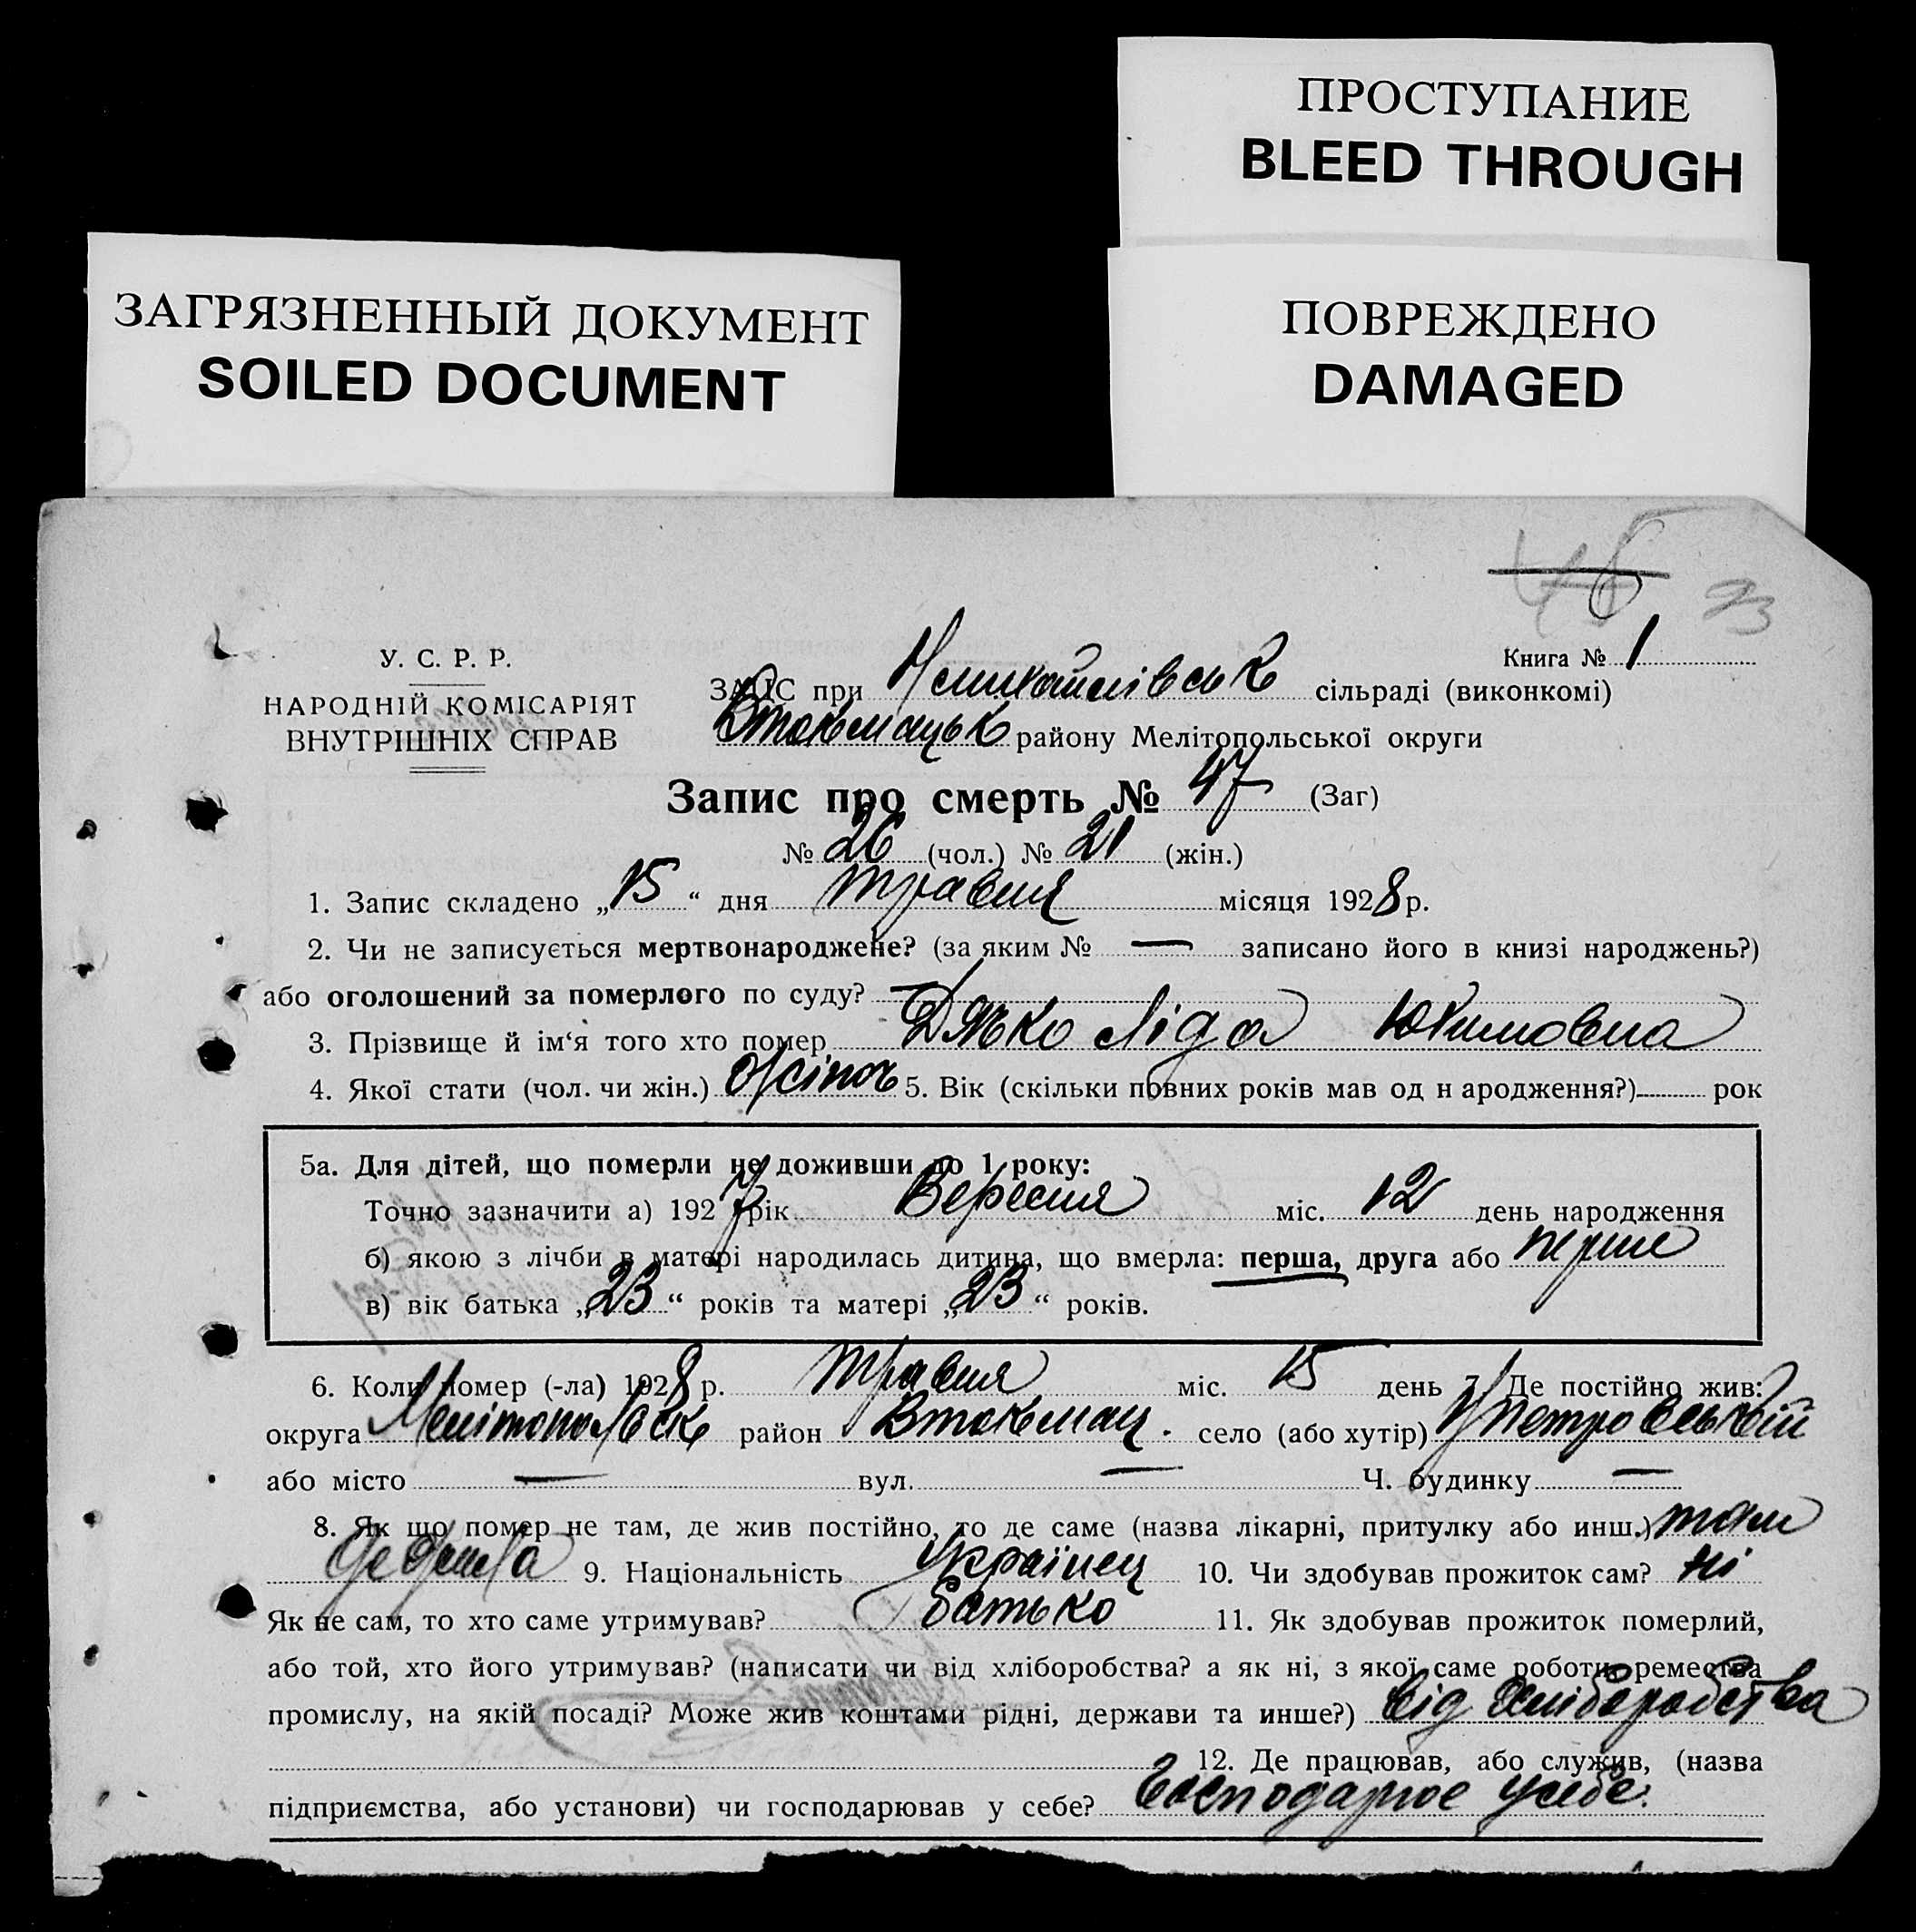 ПРОСТУПАНИЕ
BLEED THROUGH
ЗАГРЯЗНЕННЫЙ ДОКУМЕНТ
SOILED DOCUMENT
ПОВРЕЖДЕНО
DAMAGED
46 23
Книга № 1
У. С. Р. Р.
НАРОДНІЙ КОМІСАРІЯТ
ВНУТРІШНІХ СПРАВ
ЗАПІС при сільраді (виконкомі)
Втокмацьк району Мелітопольської округи
Запис про смерть № 47 (Заг)
№ 26 (чол.) № 21 (жін.)
1. Запис складено „15“ дня травня місяця 1928 р.
2. Чи не записується мертвонароджене? (за яким № — записано його в книзі народжень?)
або оголошений за померлого по суду? —
3. Прізвище й ім‘я того хто помер Дяько Ліда Юхимовна
4. Якої стати (чол. чи жін.) жіноч 5. Вік (скільки повних років мав од н ародження?) рок
5а. Для дітей, що померли не доживши до 1 року:
Точно зазначити а) 1927 рік Вересня міс. 12 день народження
б) якою з лічби в матері народилась дитина, що вмерла: перша, друга або перше
в) вік батька „23“ років та матері „23“ років.
6. Коли помер (-ла) 1928 р. травня міс. 15 день 7. Де постійно жив:
округа Мелітопольск район Втокмац. село (або хутір)
або місто — вул. — Ч. будинку —
8. Як що помер не там, де жив постійно, то де саме (назва лікарні, притулку або инш.) там
де жила 9. Національність Українец 10. Чи здобував прожиток сам? ні
Як не сам, то хто саме утримував? батько 11. Як здобував прожиток померлий,
або той, хто його утримував? (написати чи від хліборобства? а як ні, з якої саме роботи, ремества
промислу, на якій посаді? Може жив коштами рідні, держави та инше?) від хліборобства
12. Де працював, або служив, (назва
підприємства, або установи) чи господарював у себе? Господарює у себе.